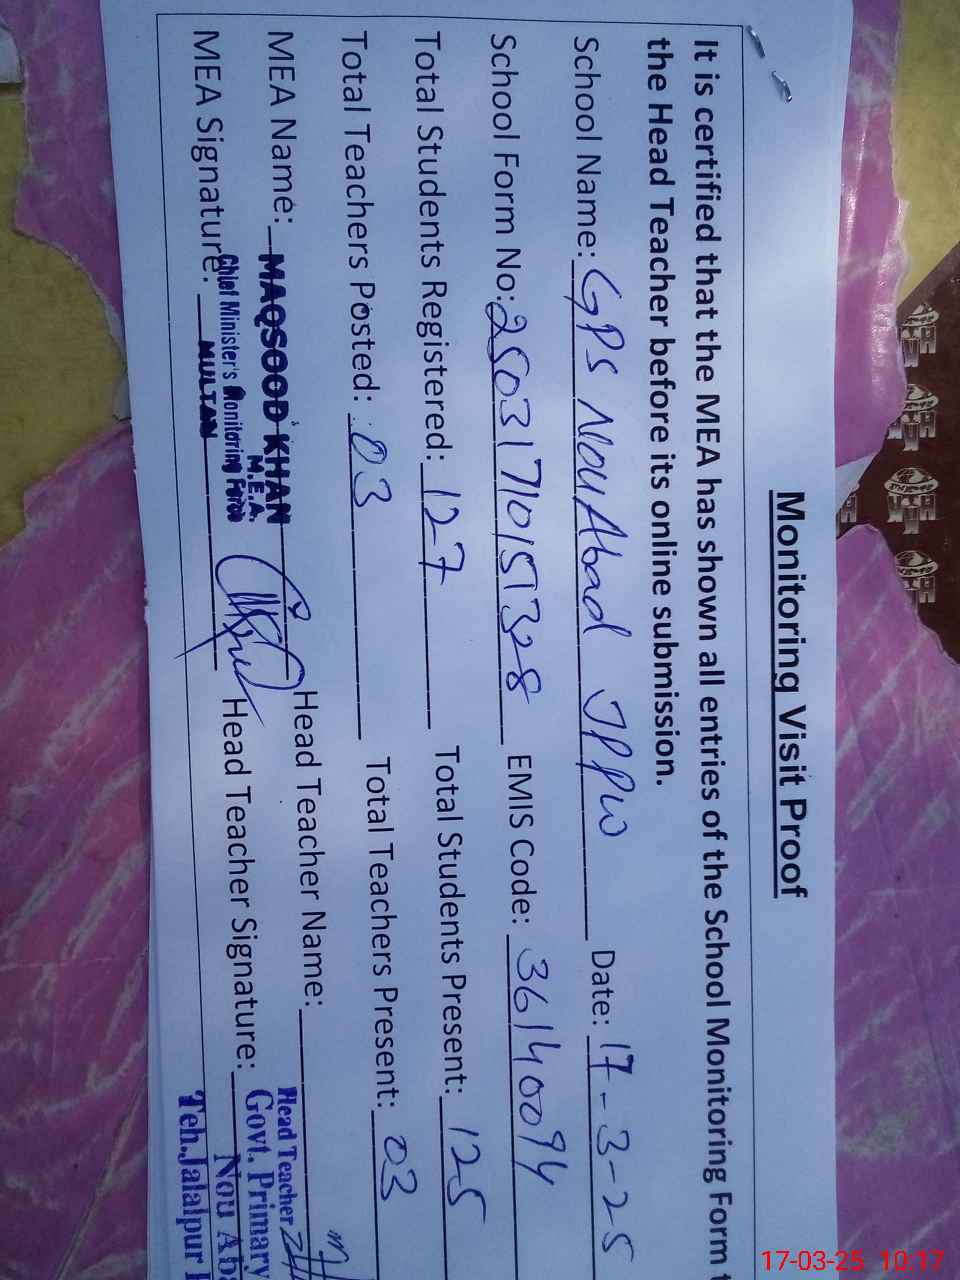 Monitoring Visit Proof
It is certified that the MEA has shown all entries of the School Monitoring Form
the Head Teacher before its online submission.
School Name: GPS Nou Abad JPPW Date: 17-3-25
School Form No: 25031710151328 EMIS Code: 36140094
Total Students Registered: 127 Total Students Present: 125
Total Teachers Posted: 03 Total Teachers Present: 03
MEA Name: MAQSOOD KHAN Head Teacher Name:
M.E.A.
MEA Signature: Head Teacher Signature:
Chief Minister's Monitoring Force
MULTAN
Head Teacher
Govt. Primary
Nou Aba
Teh. Jalalpur
17-03-25 10:17